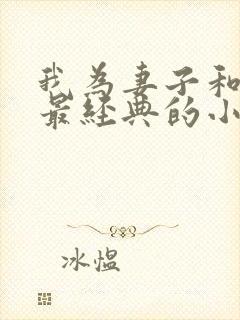 我为妻子和
最经典的小
冰愠